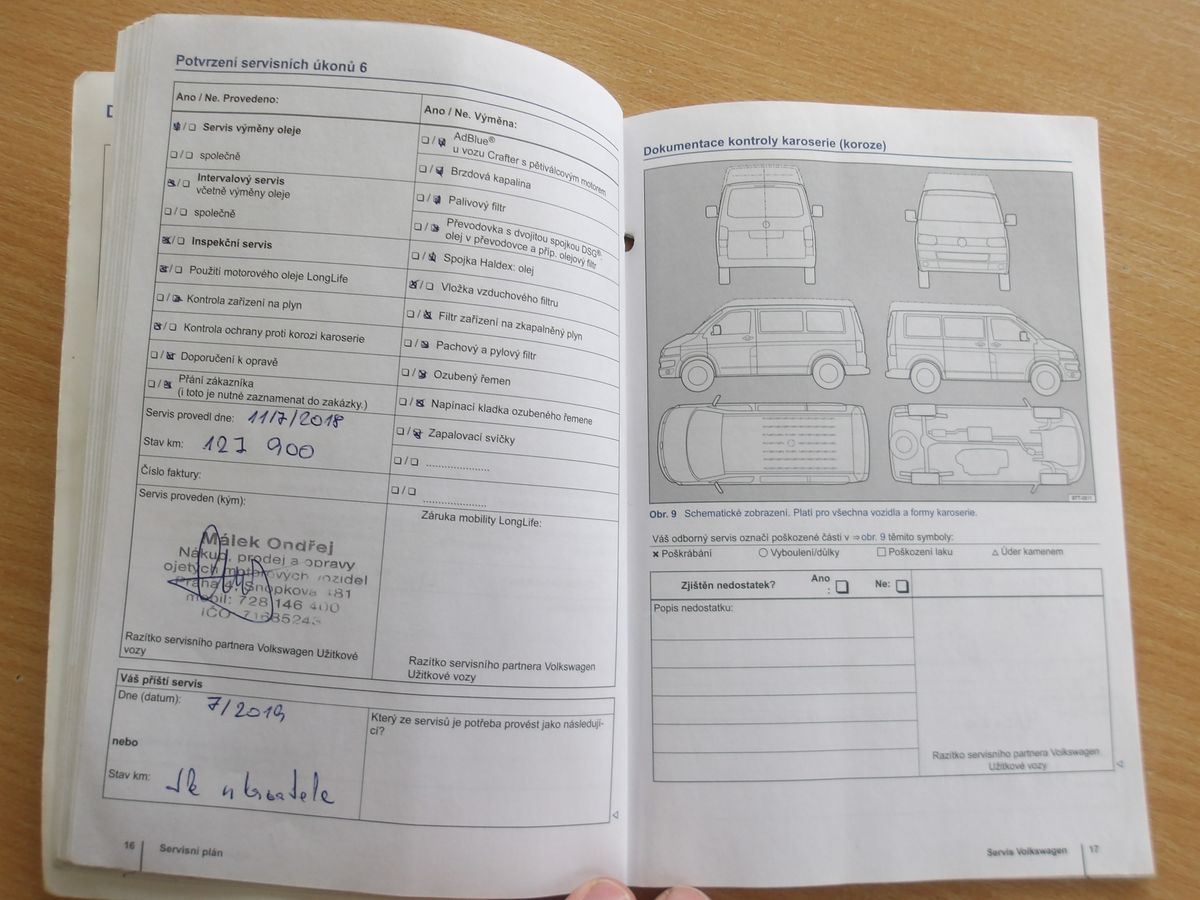 Potvrzení servisních úkonů 6
Ano / Ne. Provedeno:
Servis výměny oleje
společně
Intervalový servis
včetně výměny oleje
společně
Inspekční servis
Použití motorového oleje LongLife
Kontrola zařízení na plyn
Kontrola ochrany proti korozi karoserie
Doporučení k opravě
Přání zákazníka
(i toto je nutné zaznamenat do zakázky.)
Servis provedl dne: 11/7/2018
Stav km: 127 900
Číslo faktury:
Servis proveden (kým):
Málek Ondřej
Nákup, prodej a opravy
ojetých motorových vozidel
Praha 4, Šnopkova 481
mobil: 728 146 400
IČO 71685243
Razítko servisního partnera Volkswagen Užitkové
vozy
Ano / Ne. Výměna:
AdBlue®
u vozu Crafter s pětiválcovým motorem
Brzdová kapalina
Palivový filtr
Převodovka s dvojitou spojkou DSG®:
olej v převodovce a příp. olejový filtr
Spojka Haldex: olej
Vložka vzduchového filtru
Filtr zařízení na zkapalněný plyn
Pachový a pylový filtr
Ozubený řemen
Napínací kladka ozubeného řemene
Zapalovací svíčky
Záruka mobility LongLife:
Razítko servisního partnera Volkswagen
Užitkové vozy
Váš příští servis
Dne (datum): 7/2019
nebo
Stav km:
Který ze servisů je potřeba provést jako následují-
cí?
16 Servisní plán
Dokumentace kontroly karoserie (koroze)
Obr. 9 Schematické zobrazení. Platí pro všechna vozidla a formy karoserie.
Váš odborný servis označí poškozené části v ⇒ obr. 9 těmito symboly:
× Poškrábání ○ Vyboulení/důlky □ Poškození laku △ Úder kamenem
Zjištěn nedostatek? Ano : Ne:
Popis nedostatku:
Razítko servisního partnera Volkswagen
Užitkové vozy
Servis Volkswagen 17